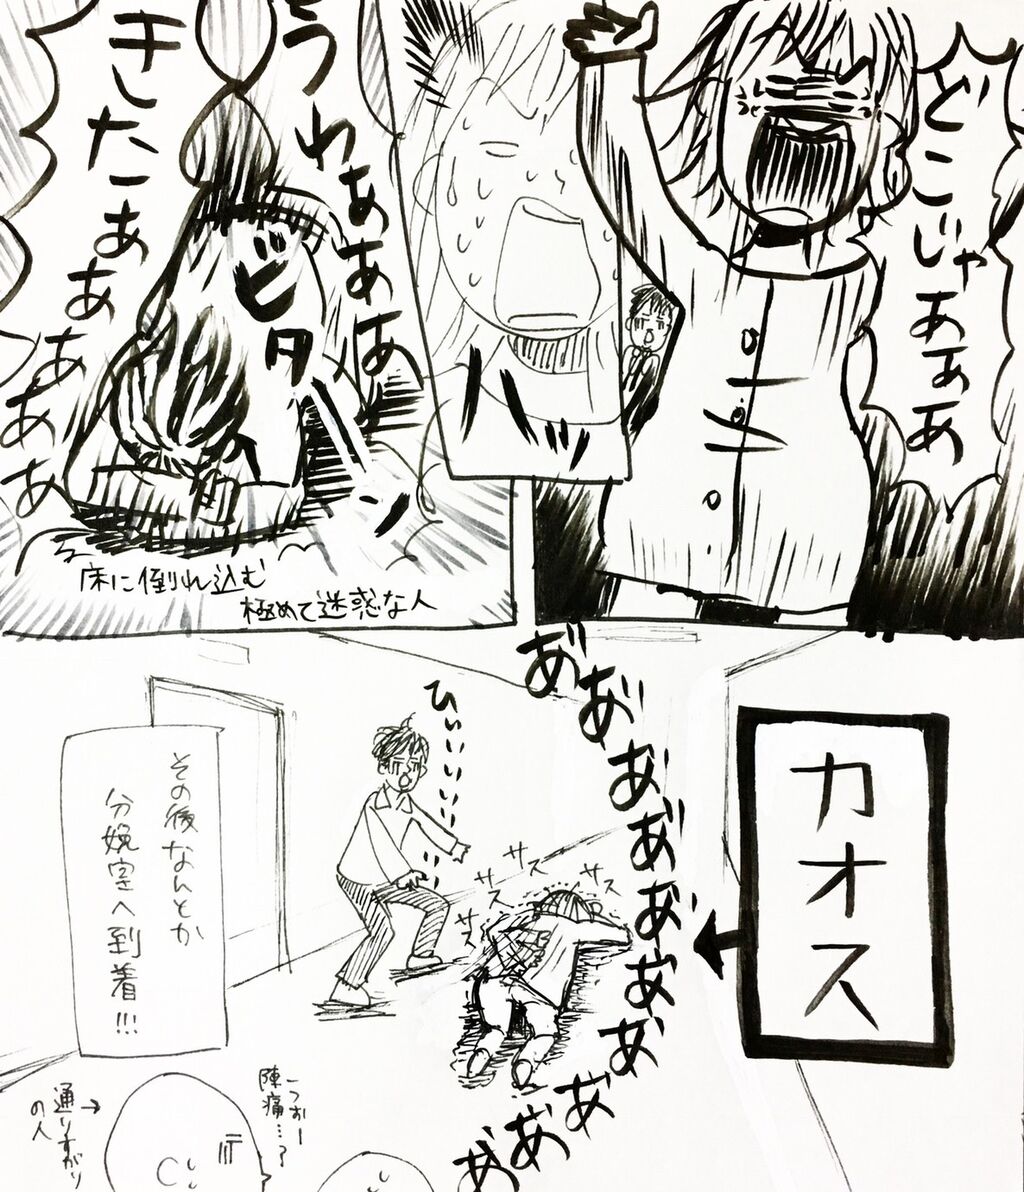 どこじゃあぁぁ
うわぁぁぁ
きたぁぁぁぁぁ
ビターン
床に倒れ込む
極めて迷惑な人
カオス
あ゛あ゛あ゛あ゛あ゛あ゛あ゛あ゛あ゛あ゛
ひぃぃぃぃぃ
サス
サス
サス
サス
その後なんとか
分娩室へ到着!!!
陣痛…?
通りすがり
の人